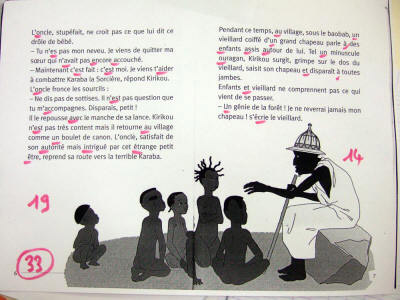 L'oncle, stupéfait, ne croit pas ce que lui dit ce
drôle de bébé.
– Tu n'es pas mon neveu. Je viens de quitter ma
sœur qui n'avait pas encore accouché.
– Maintenant c'est fait : c'est moi. Je viens t'aider
à combattre Karaba la Sorcière, répond Kirikou.
L'oncle fronce les sourcils :
– Ne dis pas de sottises. Il n'est pas question que
tu m'accompagnes. Disparais, petit !
Il le repousse avec le manche de sa lance. Kirikou
n'est pas très content mais il retourne au village
comme un boulet de canon. L'oncle, satisfait de
son autorité mais intrigué par cet étrange petit
être, reprend sa route vers la terrible Karaba.
19
33
6
Pendant ce temps, au village, sous le baobab, un
vieillard coiffé d'un grand chapeau parle à des
enfants assis autour de lui. Tel un minuscule
ouragan, Kirikou surgit, grimpe sur le dos du
vieillard, saisit son chapeau et disparaît à toutes
jambes.
Enfants et vieillard ne comprennent pas ce qui
vient de se passer.
– Un génie de la forêt ! Je ne reverrai jamais mon
chapeau ! s'écrie le vieillard.
14
7